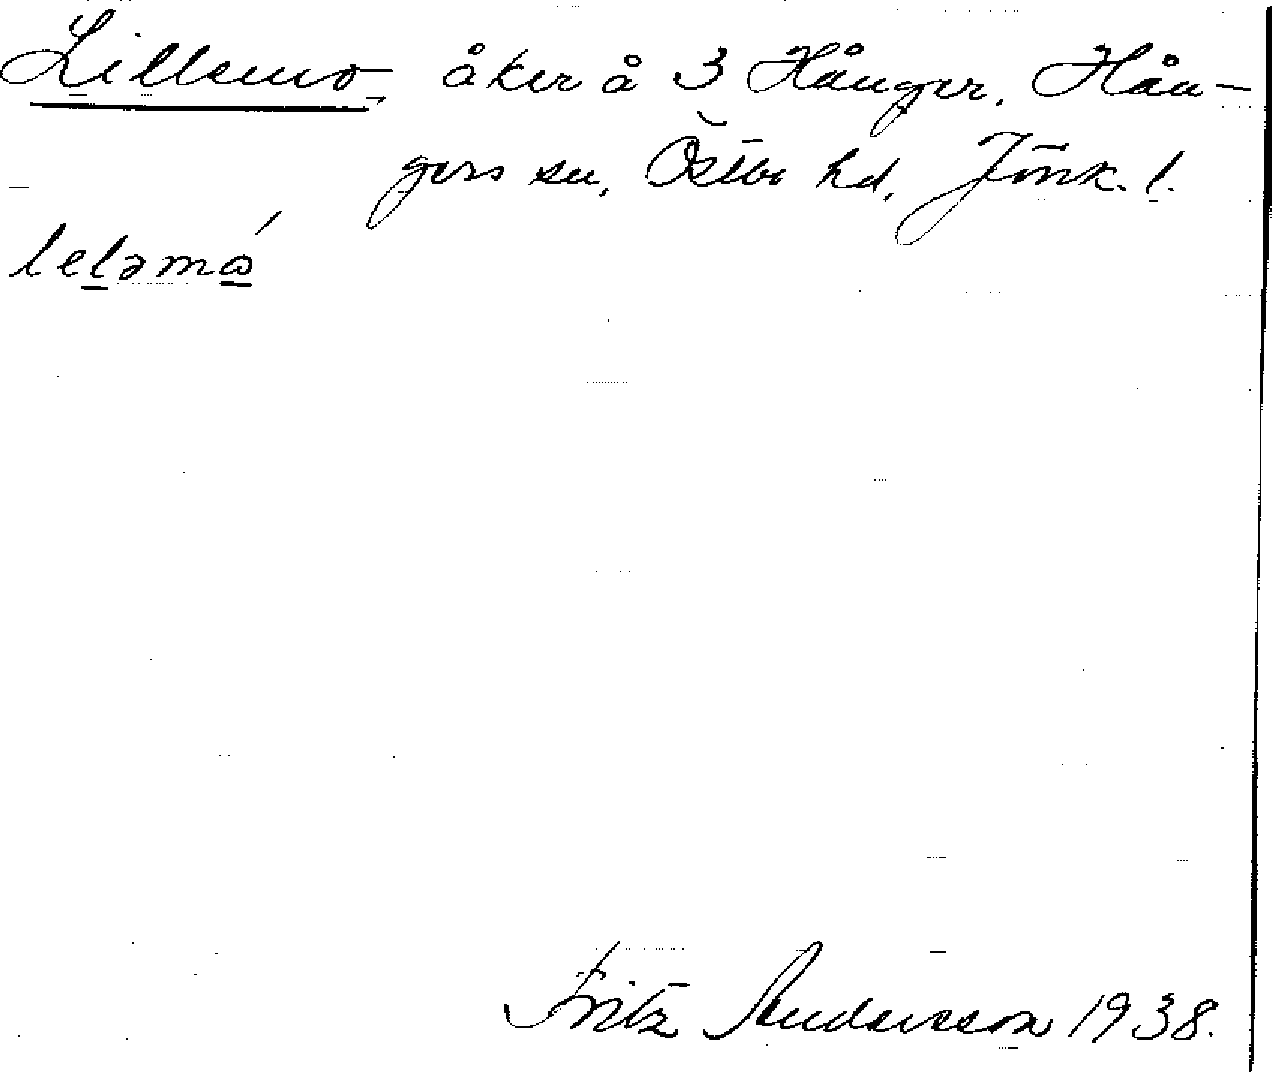 Lillemo, åker å 3 Hånger, Hån-
gers sn, Östbo hd, Jönk. l.
leləmó
Fritz Andersson 1938.